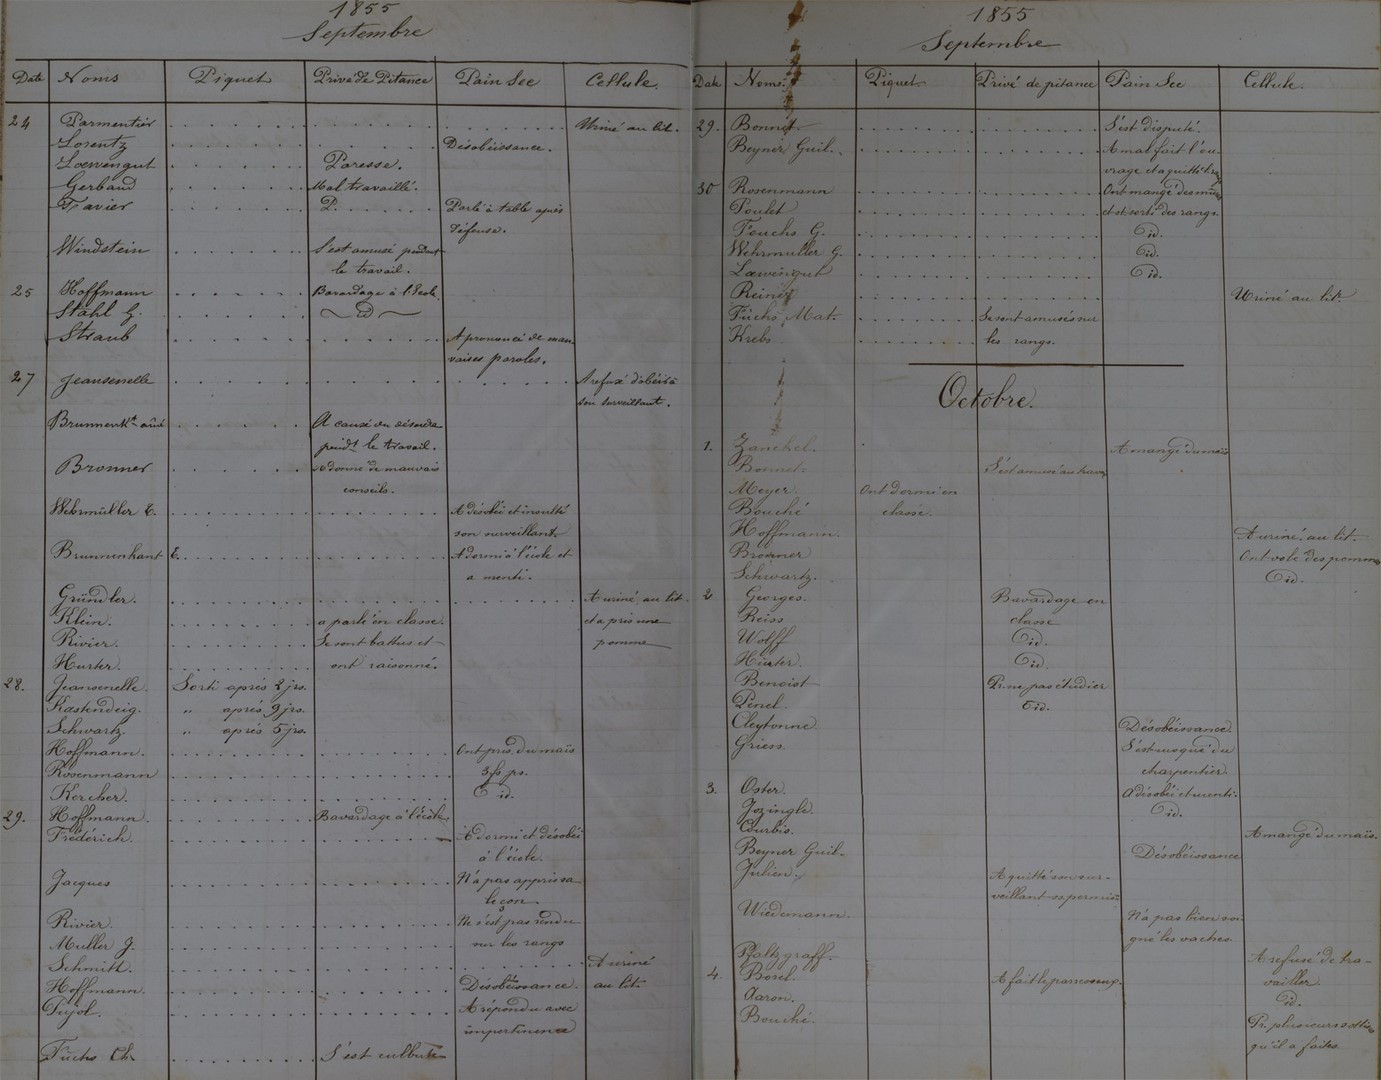 1855
Septembre
Date Noms Piquet Privé de Pitance Pain Sec Cellule.
24 Parmentier Uriné au lit.
Lorentz Désobéissance.
Loewengut Paresse.
Gerbaud Mal travaillé.
Favier P. Parlé à table après
défense.
Windstein S'est amusé pendant
le travail.
25 Hoffmann Bavardage à l'école
Stahl G. id
Straub A prononcé de mau
vaises paroles.
27 Jeansenelle A refusé d'obéir à
son surveillant.
Brunnenkt aîné A causé du désordre
pendt le travail.
Bronner A donné de mauvais
conseils.
Wehrmüller E. A désobéi et insulté
son surveillant.
Brunnenkant E. A dormi à l'école et
a menti.
Gründler. A uriné au lit.
Klein. a parlé en classe. et a pris une
Rivier. Se sont battus et pomme
Hurter. ont raisonné.
28. Jeansenelle. Sorti après 2 jrs.
Kastendeig. " après 9 jrs.
Schwartz. " après 5 jrs.
Hoffmann. Ont pris du maïs
Rosenmann
Kercher. id.
29. Hoffmann. Bavardage à l'école
Frédérich. A dormi et désobéi
à l'école.
Jacques N'a pas appris sa
leçon
Rivier. Ne s'est pas rendu
Muller J. sur les rangs
Schmitt. A uriné
Hoffmann. Désobéissance. au lit.
Pujol. A répondu avec
impertinence
Fuchs Ch. S'est culbuté
1855
Septembre
Date Noms. Piquet. Privé de pitance Pain Sec Cellule.
29. Bonnet S'est disputé.
Beyner Guil. A mal fait l'ou
vrage et a quitté
30 Rosenmann Ont mangé des mûres
Poulet et st sorti des rangs.
Feuchs G. id.
Wehrmuller G. id.
Loewengut id.
Reiner Uriné au lit
Füchs Mat. Se sont amusés sur
Krebs les rangs.
Octobre.
1. Zanchel. A mangé du maïs
Bonnet. S'est amusé au travail
Meyer. Ont dormi en
Bouché classe.
Hoffmann. A uriné au lit.
Bronner Ont volé des pommes
Schwartz. id.
2 Georges. Bavardage en
Reiss classe
Wolff id.
Hürter. id.
Benoist Pr. ne pas étudier
Pénel. id.
Cleytonne Désobéissance.
Griess. S'est moqué du
charpentier.
3. Oster. A désobéi et menti.
Jozingle. id.
Courbis. A mangé du maïs.
Beyner Guil. Désobéissance
Julien. A quitté son sur-
veillant s. permis.
Wiedemann. N'a pas bien soi
gné les vaches.
Pfaltzgraff. A refusé de tra-
4. Borel. A fait le paresseux. vailler.
Aaron. id.
Bouché. Pr. plusieurs sottises
qu'il a faites